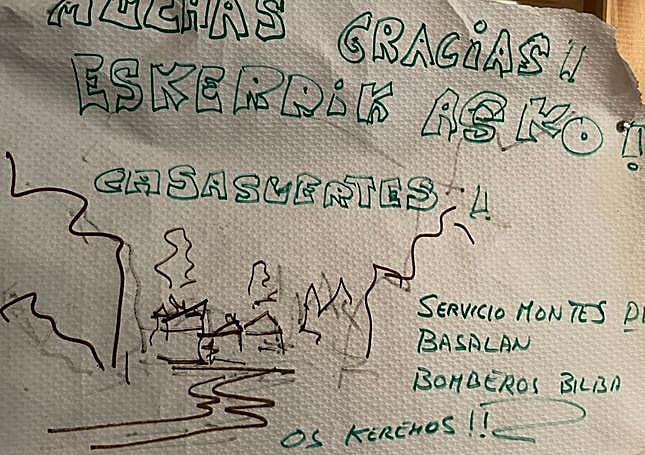 MUCHAS GRACIAS!!
ESKERRIK ASKO!
CASASUERTES!!
SERVICIO MONTES D
BASALAN
BOMBEROS BILBA
OS KEREMOS!!